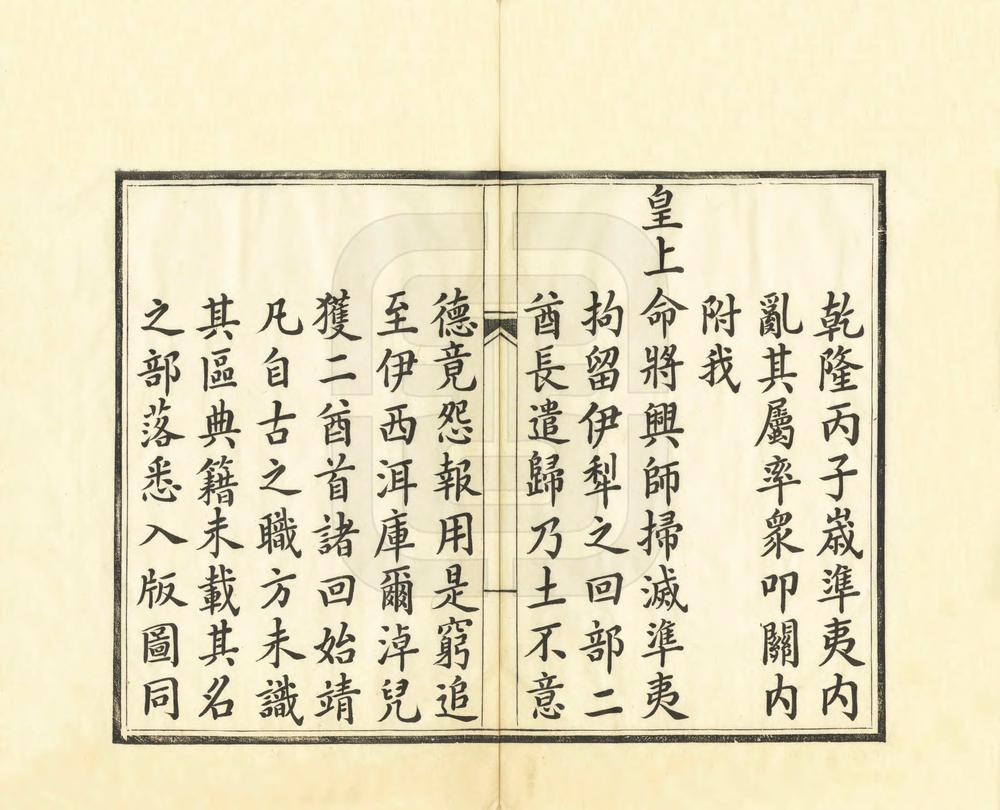 乾隆丙子歲準夷内
亂其屬率衆叩關内
附我
皇上命將興師掃滅準夷
拘留伊犁之回部二
酋長遣歸乃土不意
德竟怨報用是窮追
至伊西洱庫爾淖兒
獲二酋首諸回始靖
凡自古之職方未識
其區典籍未載其名
之部落悉入版圖同